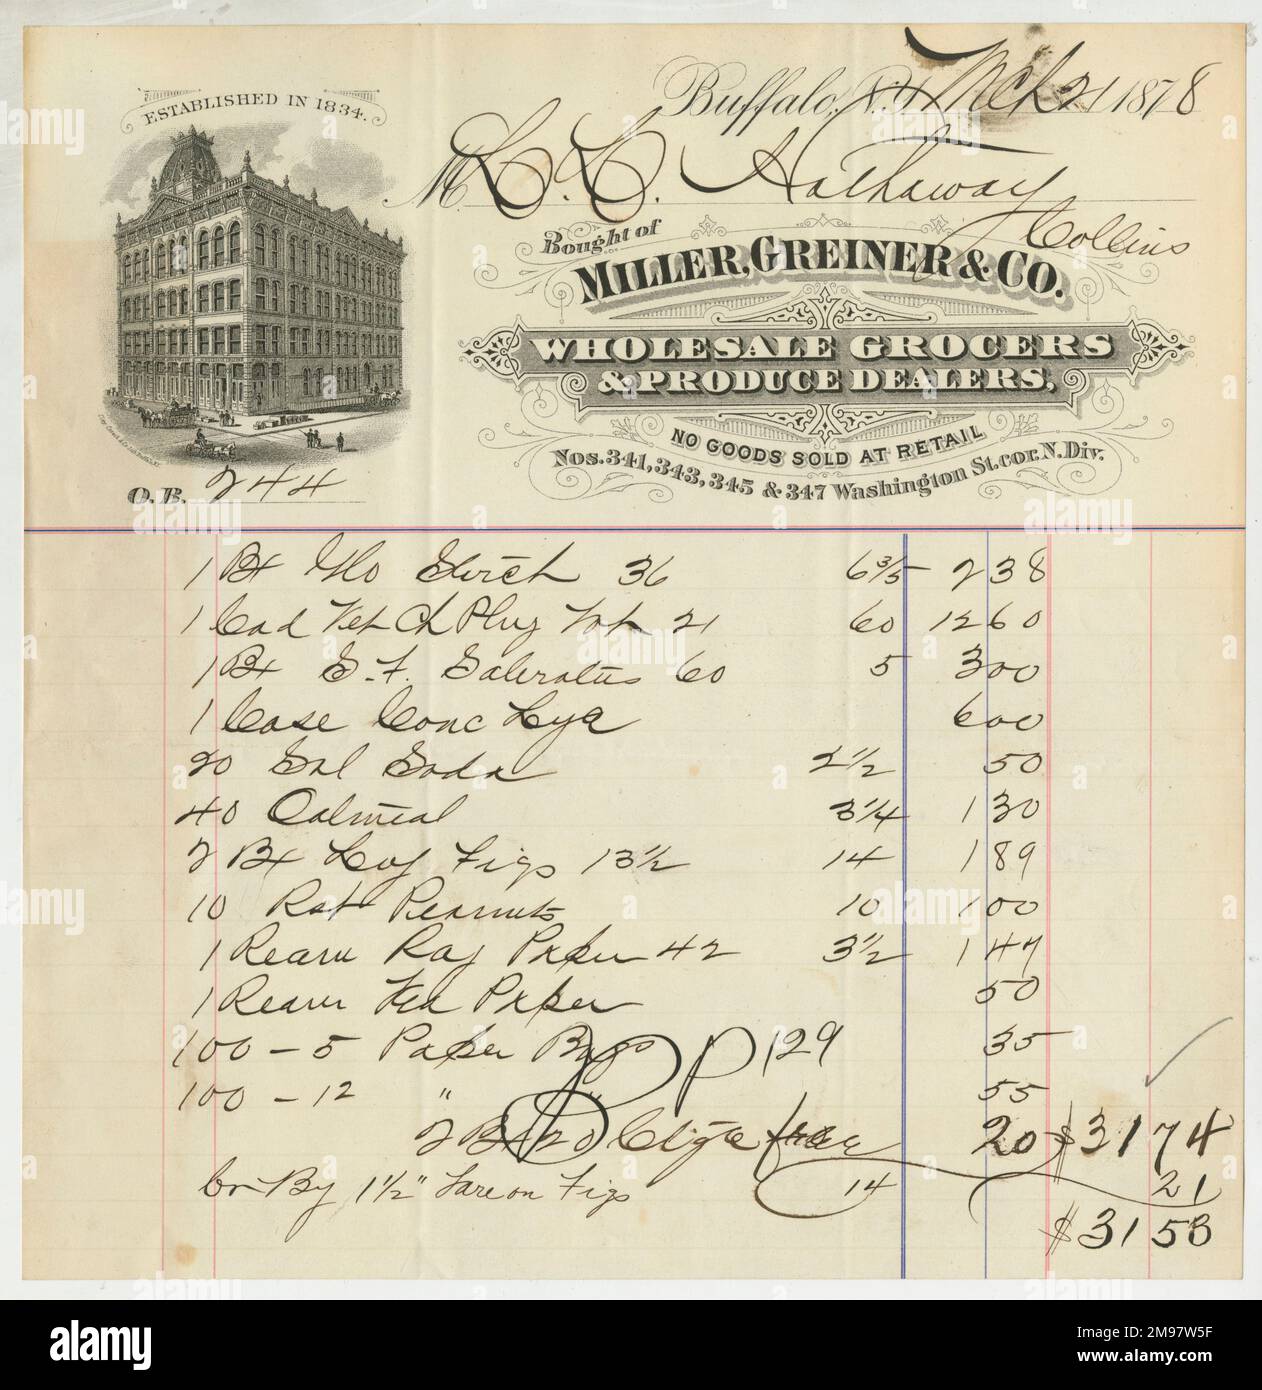 ESTABLISHED IN 1834.
Buffalo, N.Y. Mch 21 1878
M. C. C. Hathaway
Collins
Bought of
MILLER, GREINER & CO.
WHOLESALE GROCERS
& PRODUCE DEALERS,
NO GOODS SOLD AT RETAIL
Nos. 341, 343, 345 & 347 Washington St. cor. N. Div.
O.B. 244
1 Bx Glo Starch 36 6 3/5 2 38
1 Cad Vet Ch Plug Tob 21 60 12 60
1 Bx Saleratus 60 5 3 00
1 Case Conc Lye 6 00
20 Sal Soda 2 1/2 50
40 Oatmeal 3 1/4 1 30
2 Bx Figs 13 1/2 14 1 89
10 Rst Peanuts 10 1 00
1 Ream Rag Paper 42 3 1/2 1 47
1 Ream Tea Paper 50
100 - 5 Paper Bags P 129 35
100 - 12 " " 55
2 Bx 20 $31 74
Cr By 1 1/2" Tare on Figs 14 21
$31 53
alamy
Image ID: 2M97W5F
www.alamy.com